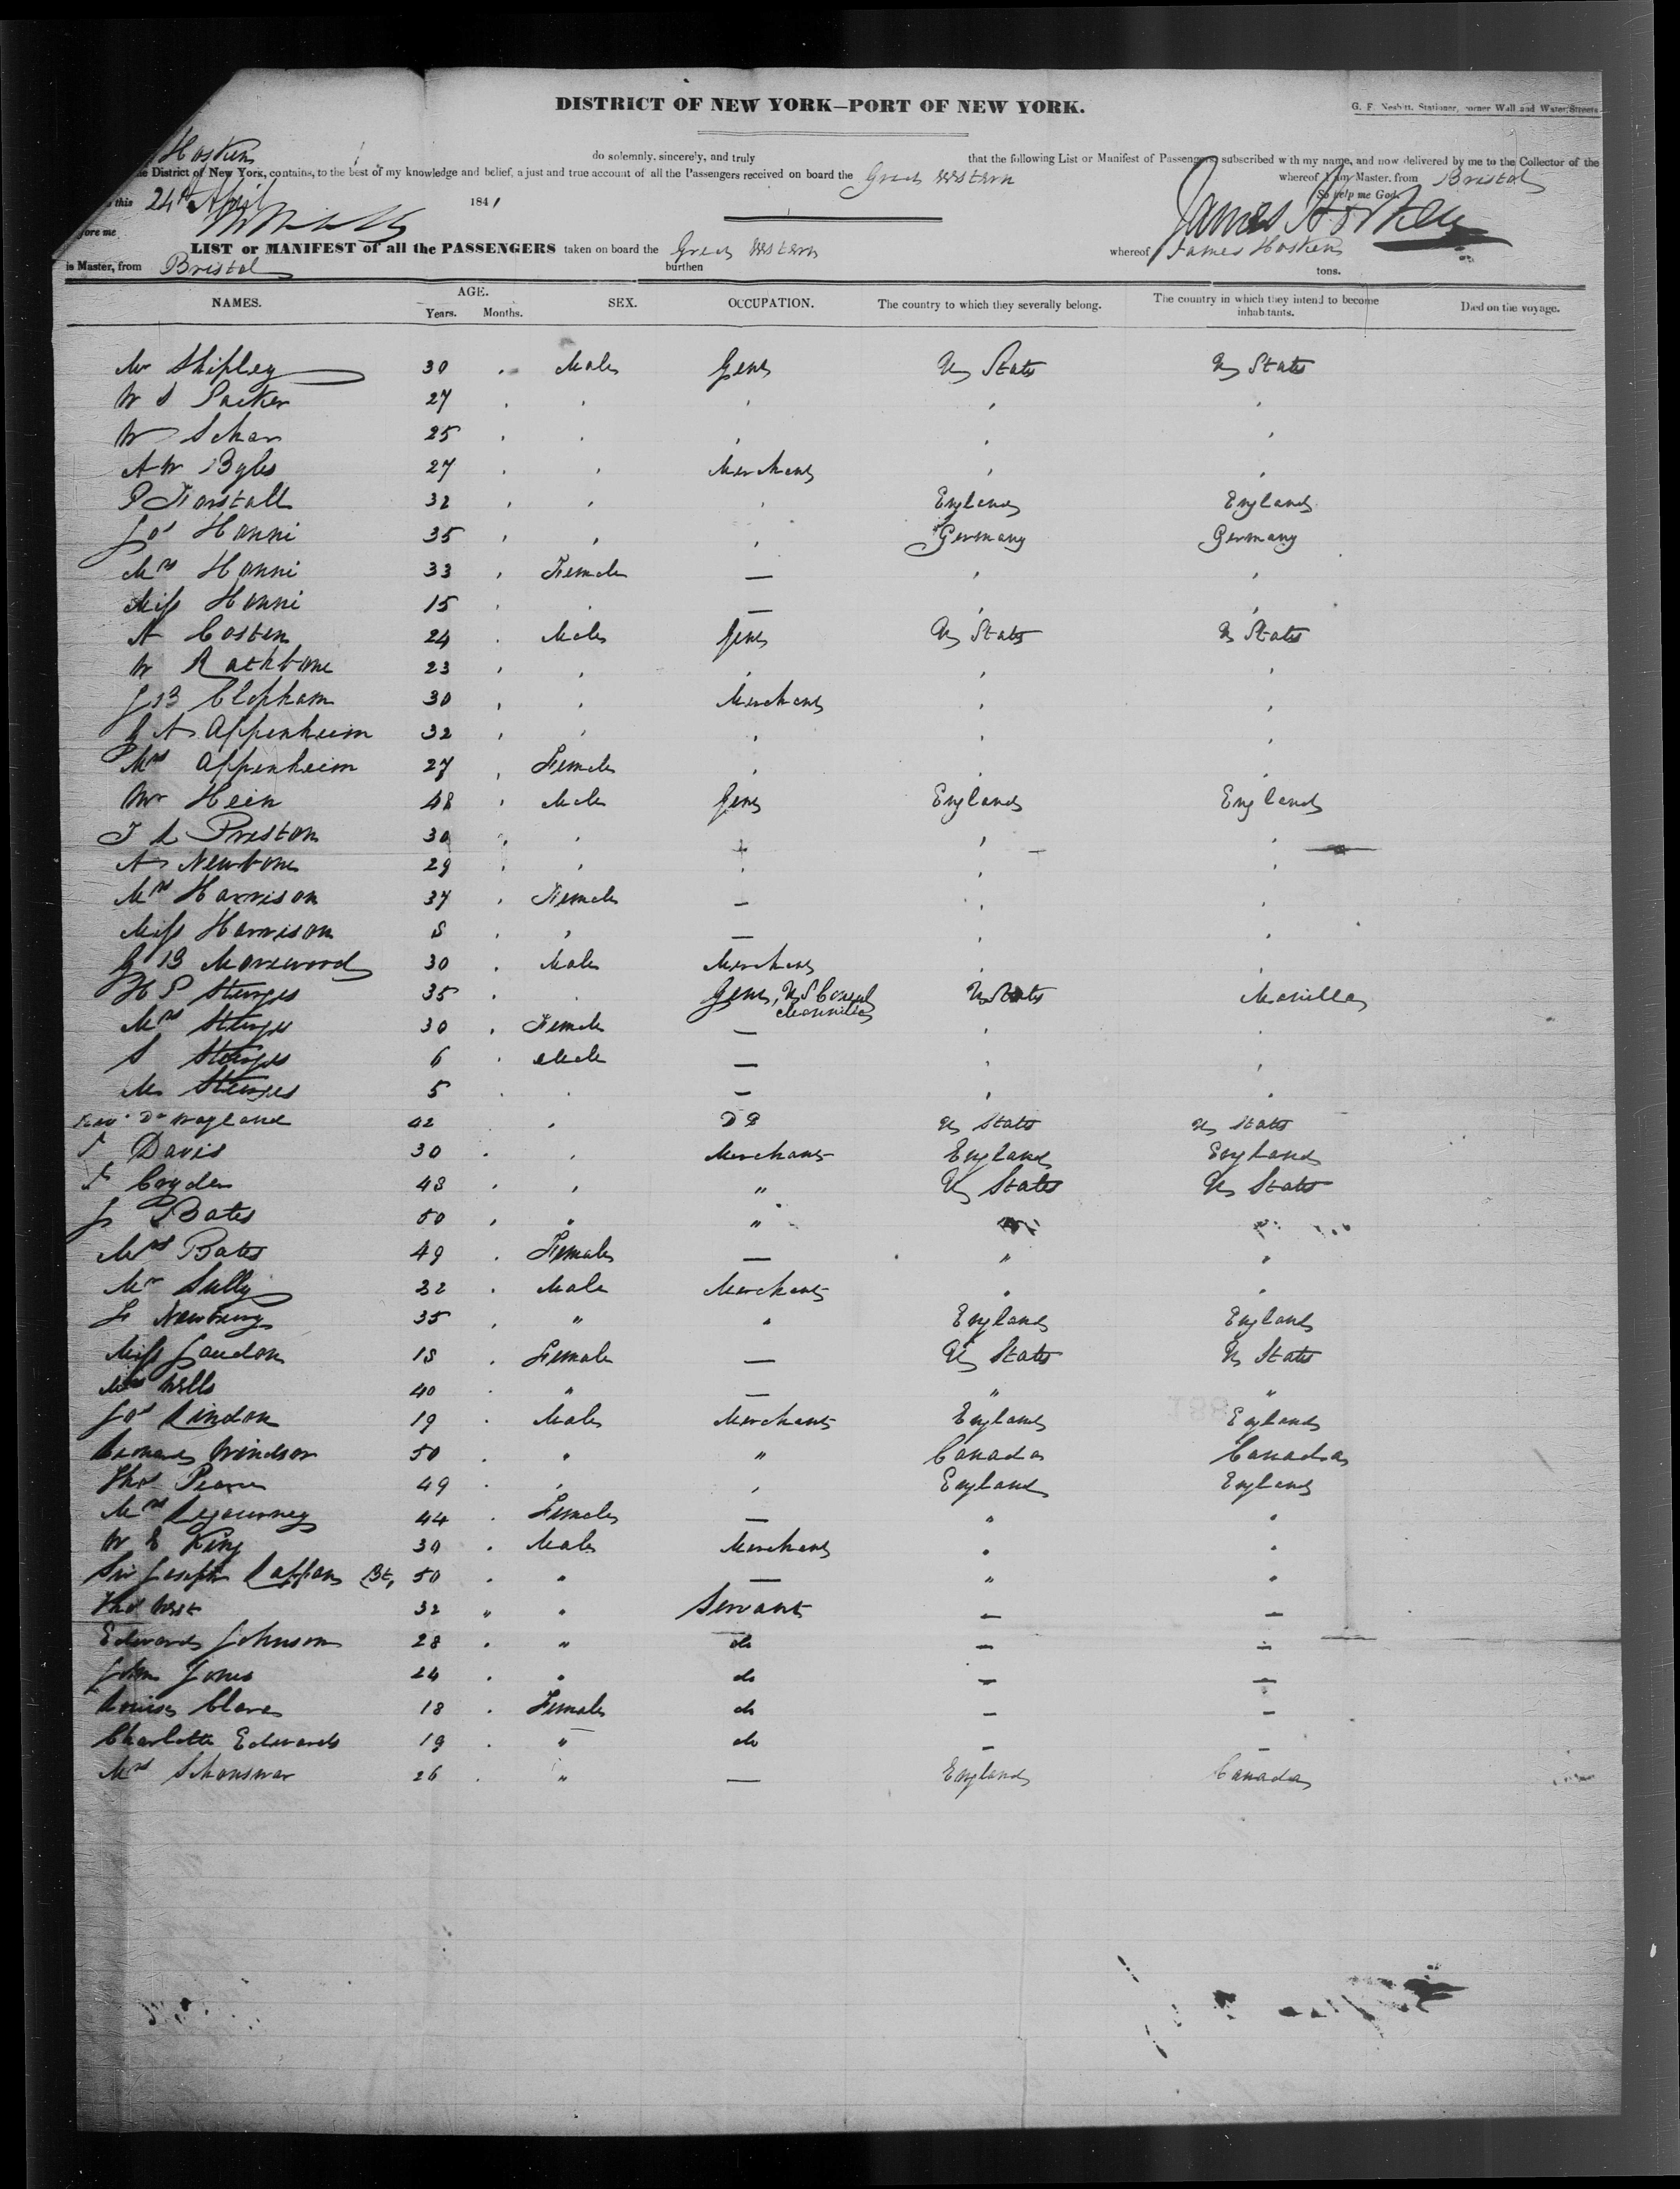 DISTRICT OF NEW YORK—PORT OF NEW YORK.
G. F. Nesbitt, Stationer, corner Wall and Water Streets
Hosken do solemnly, sincerely, and truly that the following List or Manifest of Passengers, subscribed with my name, and now delivered by me to the Collector of the
District of New York, contains, to the best of my knowledge and belief, a just and true account of all the Passengers received on board the Great Western whereof I am Master, from Bristol
this 24th April 1841 So help me God.
fore me James Hosken
LIST or MANIFEST of all the PASSENGERS taken on board the Great Western whereof James Hosken
is Master, from Bristol burthen tons.
NAMES. AGE. Years. Months. SEX. OCCUPATION. The country to which they severally belong. The country in which they intend to become inhabitants. Died on the voyage.
Mr Shipley 30 Male Gent U States U States
W S Packer 27
W Schar 25
A W Byles 27 Merchant
P Forstall 32 England England
Jos Hanni 35 Germany Germany
Mrs Hanni 33 Female —
Miss Hanni 15 —
A Costen 24 Male Gent U States U States
W Rathbone 23
J B Clapham 30 Merchant
A Appenheim 32
Mrs Appenheim 27 Female
Mr Hein 48 Male Gent England England
T L Preston 30
A Newbone 29
Mrs Harrison 37 Female —
Miss Harrison 8 —
G B Morewood 30 Male Merchant
H P Sturges 35 Gent, U S Consul Manilla U States Manilla
Mrs Sturges 30 Female —
S Sturges 6 Male —
M Sturges 5 —
Revd Dr Wayland 42 D D U States U States
Davis 30 Merchant England England
Coyden 48 " U States U States
J Bates 50 "
Mrs Bates 49 Female — " "
Mr Sully 32 Male Merchant "
Newbury 35 " " England England
Miss Gaudon 18 Female — U States U States
Mrs Wells 40 " — " "
Jos Lindon 19 Male Merchant England England
Windsor 50 " " Canada Canada
Thos Pearce 49 England England
Mrs Sigourney 44 Female — " "
W E King 30 Male Merchant " "
Sir Joseph Bt, 50 " — " "
Thos West 32 " " Servant — —
Edward Johnson 28 " do — —
John Jones 24 " do — —
Louisa Clara 18 Female do — —
Charlotte Edwards 19 " do — —
Mrs Schonswar 26 " — England Canada